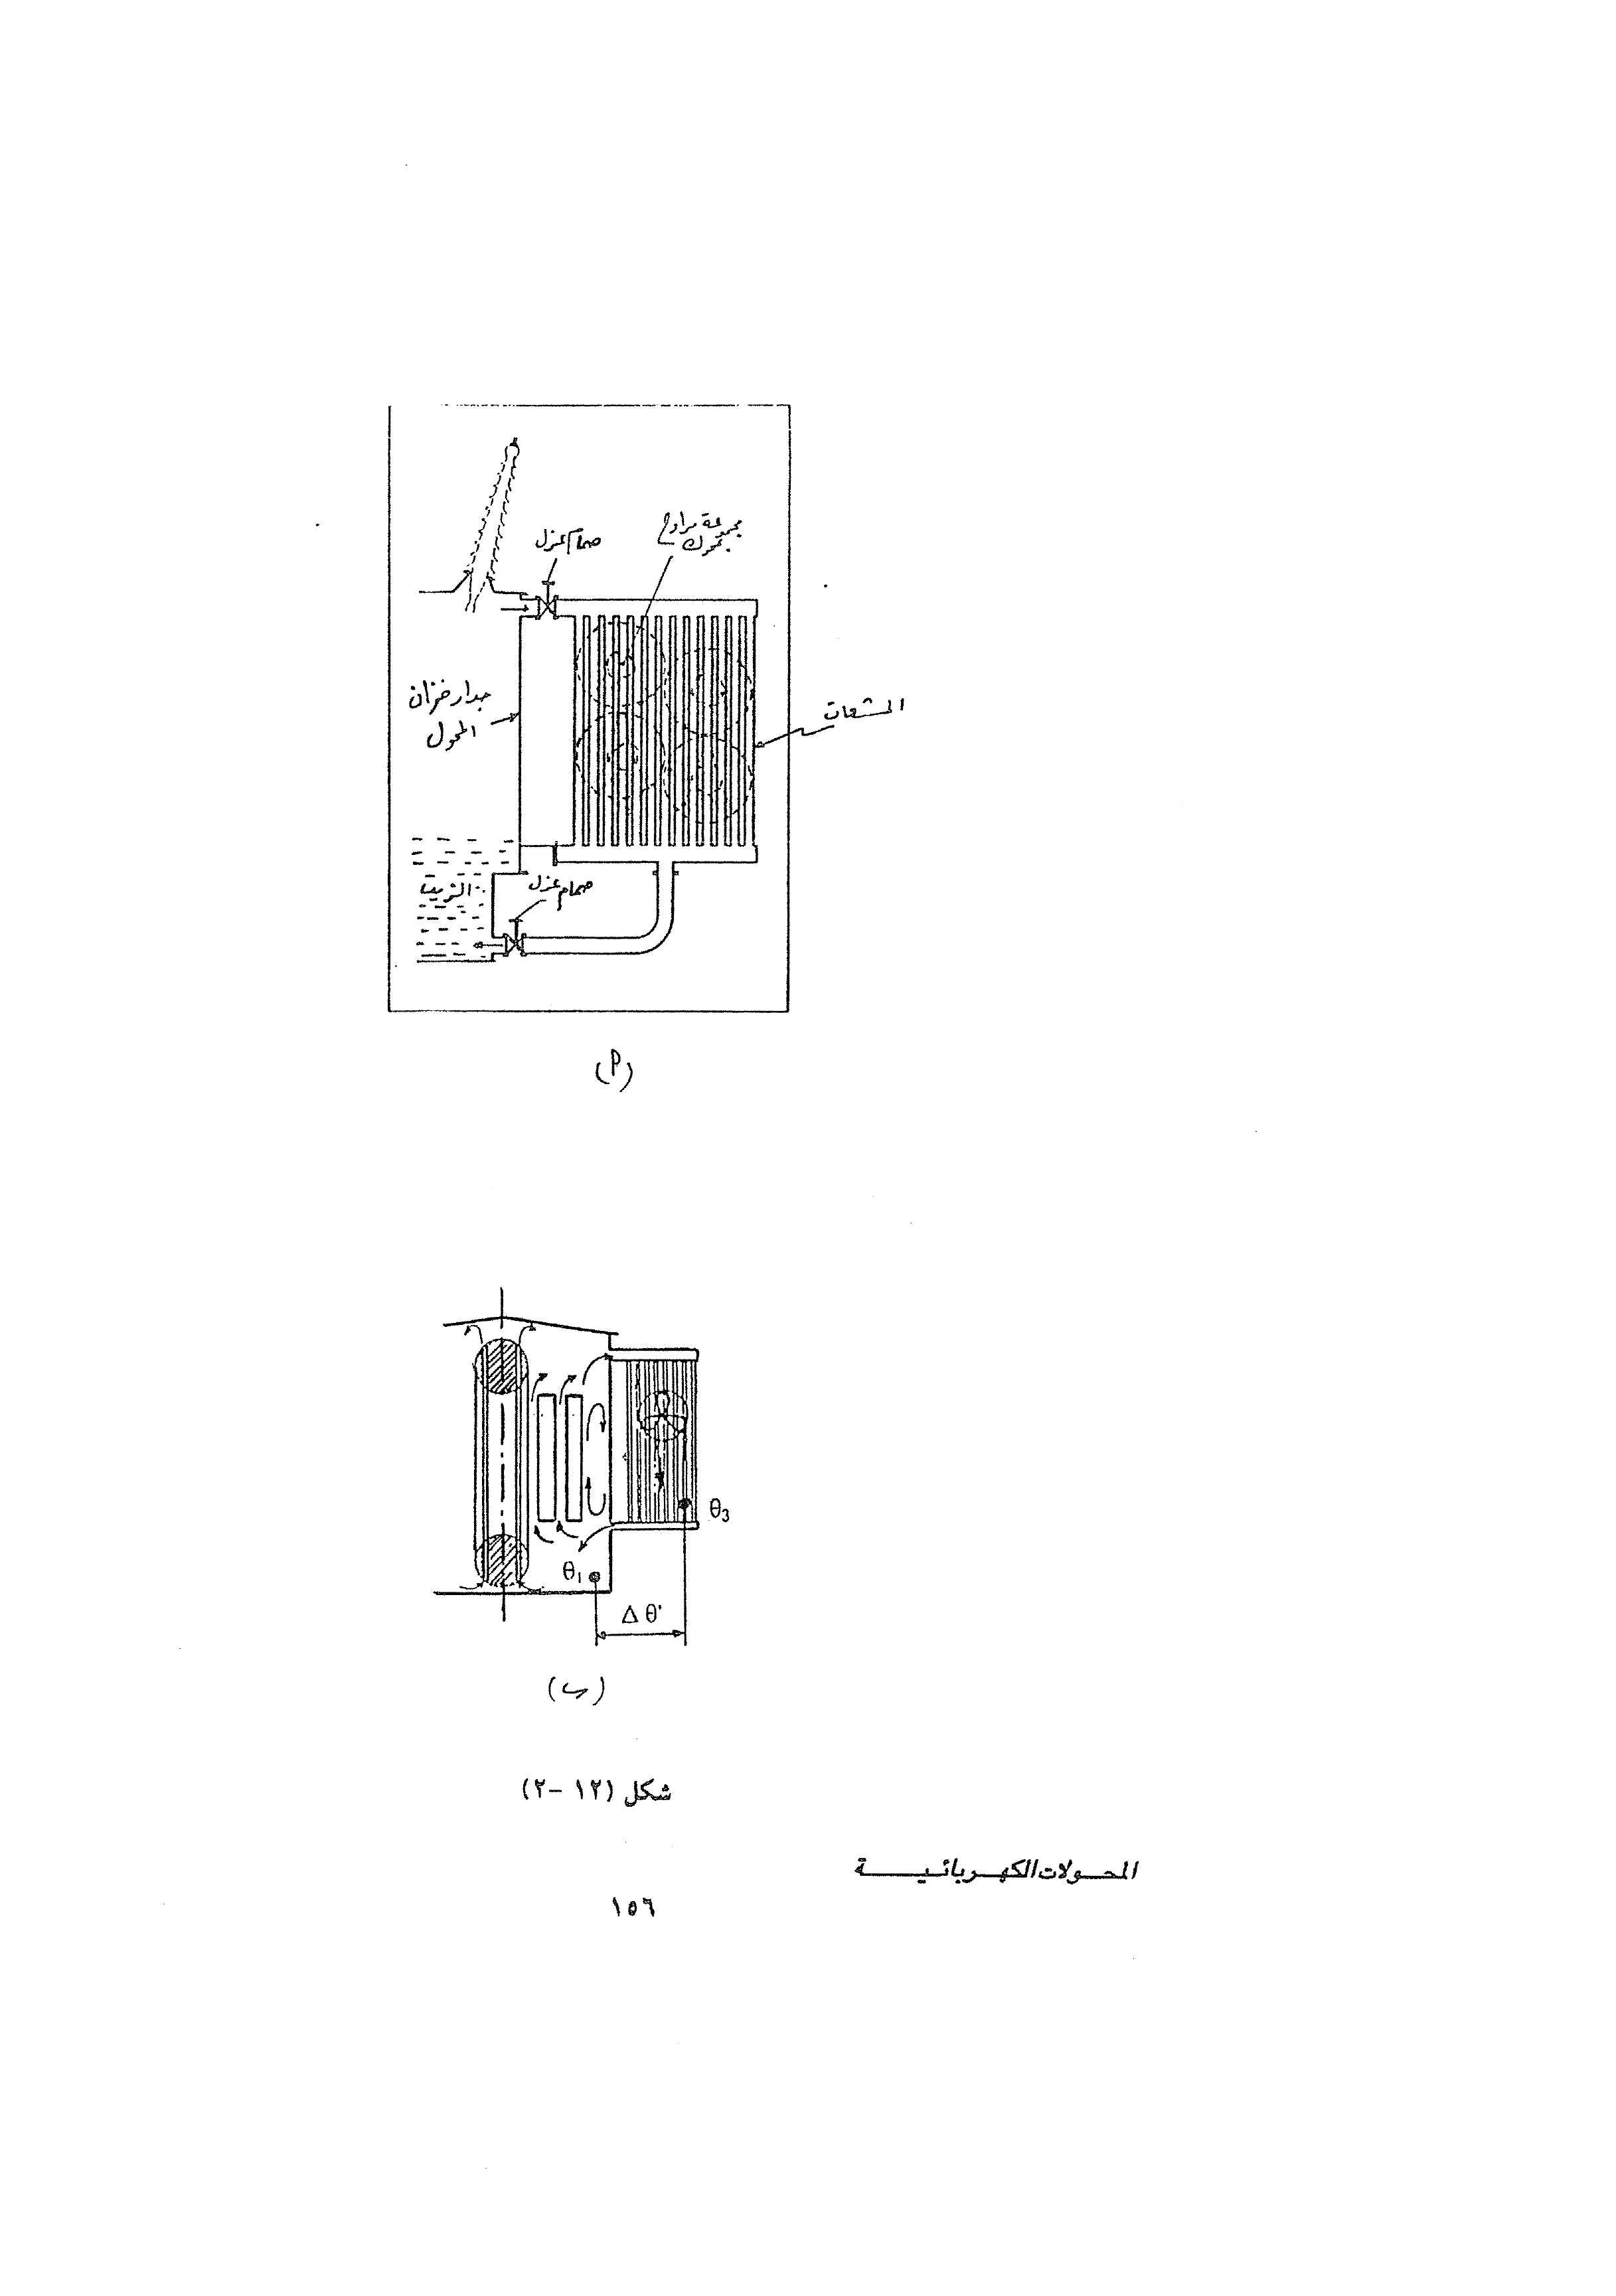 مجموعة مراوح
بمحرك
صمام عزل
جدار خزان
المحول
المشعات
الزيت
صمام عزل
(أ)
θ3
θ1
Δ θ'
(ب)
شكل (١٢ -٢)
المحولات الكهربائية
١٥٦